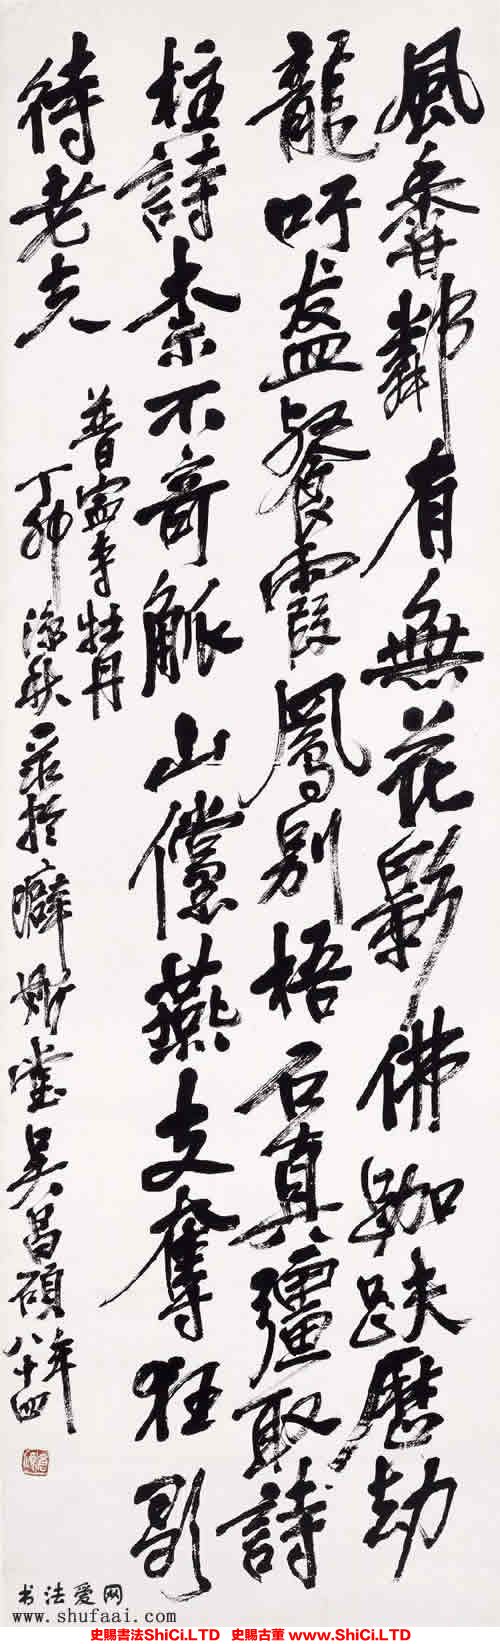 風香鄰有無花影佛跏趺歷劫
龍吁盋餐霞鳳別梧石真彊取詩
柱詩素不奇觚山儻燕支奪狂歌
待老夫
普寧寺牡丹
丁卯涼秋录於癖斯堂吳昌碩年八十四
书法爱网
www.shufaai.com
史賜書法ShiCi.LTD 史賜古董 www.ShiCi.LTD